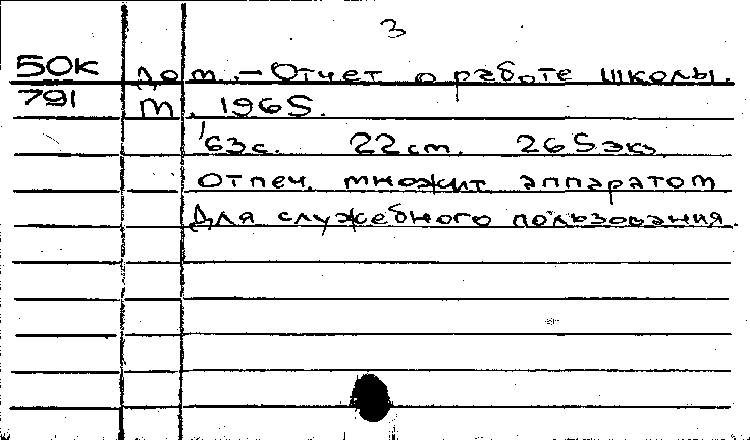 3
50К дот. – Отчет о работе школы.
791 м. 1965.
163с. 22cm. 265экз
отпеч. множит аппаратом
Для служебного пользования.